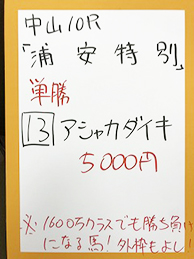 中山10R
「浦安特別」
単勝
13 アシャカダイキ
5000円
※1600万クラスでも勝ち負け
になる馬!外枠もよし!